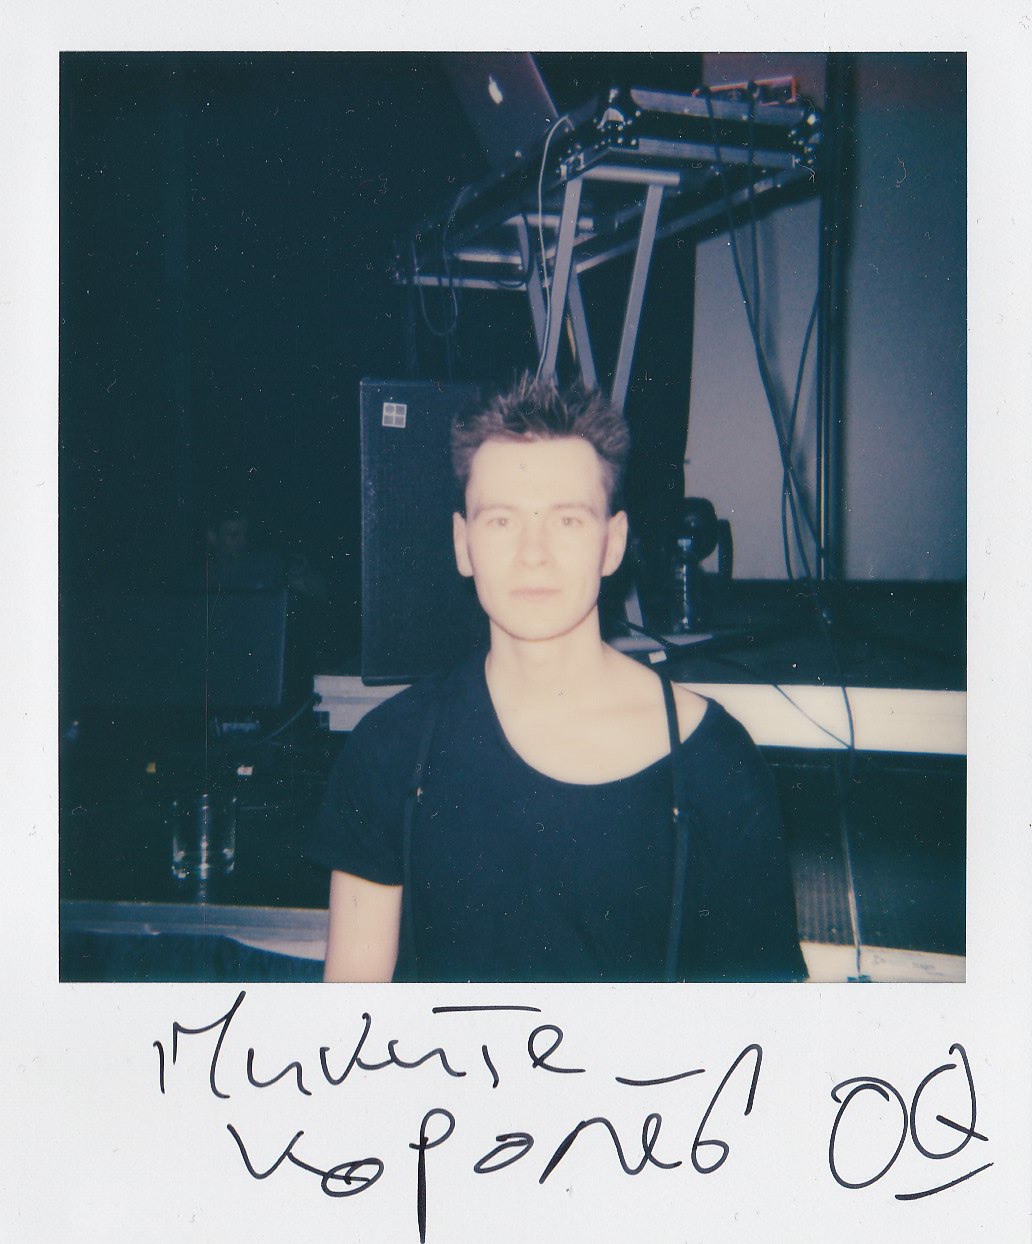 Микита
королев OQ